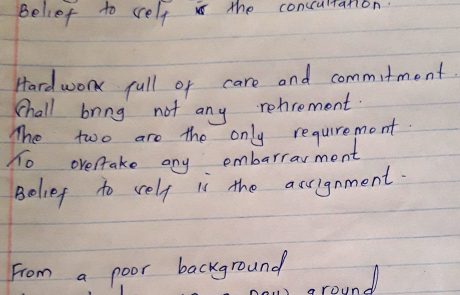 Belief to self is the consultation.
Hardwork full of care and commitment.
Shall bring not any retirement.
The two are the only requirement.
To overtake any embarrasment
Belief to self is the assignment.
From a poor background
a around